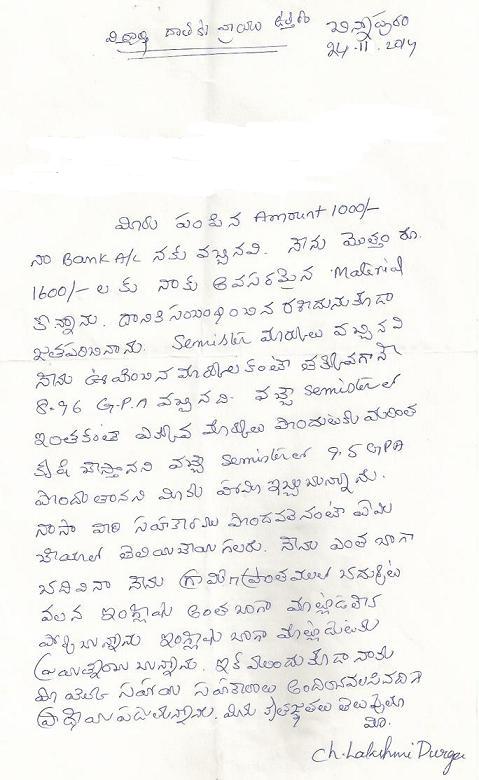 విద్యార్థి దాతకు వ్రాయు ఉత్తరం
చిన్నాపురం
24.11.2014
మీరు పంపిన Amount 1000/-
నా Bank A/c నకు వచ్చినవి. నేను మొత్తం రూ.
1600/- లకు నాకు అవసరమైన Material
కొన్నాను. దానికి సంబంధించిన రశీదునుకూడా
జతపరిచినాను. Semister మార్కులు వచ్చినవి
నేను ఊహించిన మార్కులకంటే తక్కువగానే
8.96 G.P.A వచ్చినది. వచ్చే Semisterలో
ఇంతకంటే ఎక్కువ మార్కులు పొందుటకు మరింత
కృషి చేస్తానని వచ్చే Semisterలో 9.5 GPA
పొందుతానని మీకు హామీ ఇచ్చుచున్నాను.
వారి సహకారము పొందవలెనంటే ఏమి
చేయాలో తెలియచేయగలరు. నేను ఎంత బాగా
చదివినా నేను గ్రామీణప్రాంతములో చదువుట
వలన ఇంగ్లీషు అంత బాగా మాట్లాడలేక
పోవుచున్నాను ఇంగ్లీషు బాగా మాట్లాడుటకు
ప్రయత్నించుచున్నాను. ఇక ముందుకూడా నాకు
మీ యొక్క సహాయ సహకారాలు అందించవలసినదిగా
ప్రార్థించుచున్నాను. మీకు కృతజ్ఞతలు తెలుపుతూ
మీ.
Ch. Lakshmi Durga